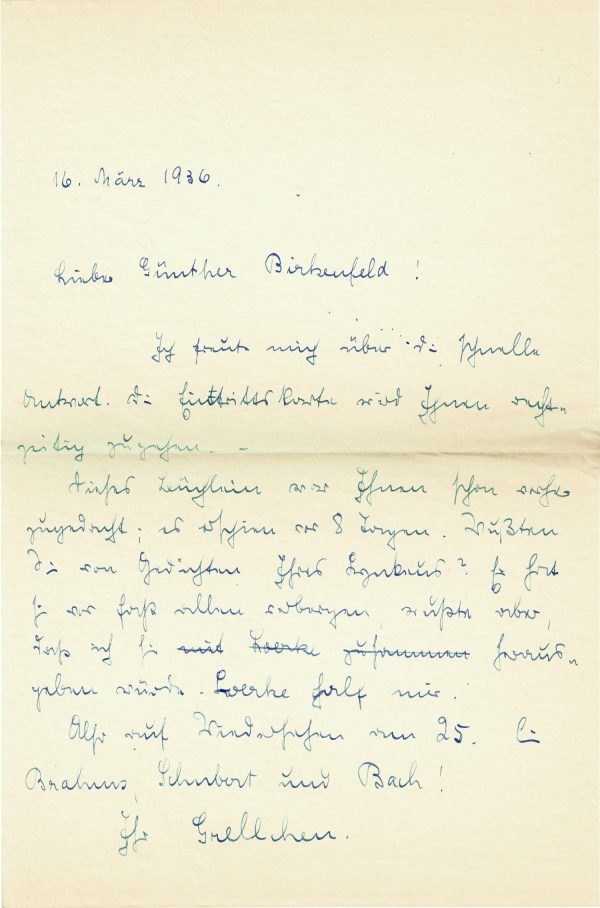 16. März 1936.
Lieber Günther Birkenfeld!
Ich freute mich über die schnelle
Antwort. Die Eintrittskarte wird Ihnen recht=
zeitig zugehen. –
Dieses Büchlein war Ihnen schon vorher
zugedacht; es erschien vor 8 Tagen. Wußten
Sie von Gedichten Ihres Lynkeus? Er hat
sie vor fast allen verborgen, wußte aber,
daß ich sie mit Loerke zusammen heraus=
geben würde. Loerke half mir.
Also auf Wiedersehen am 25. bei
Brahms, Schubert und Bach!
Ihr